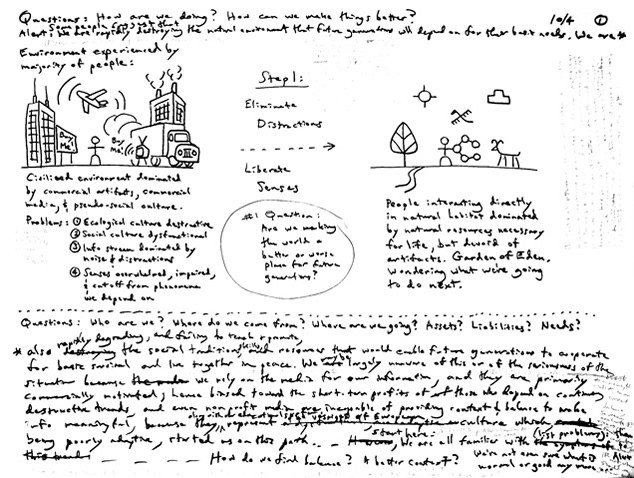 Questions: How are we doing? How can we make things better?
10/4 ①
Some people say that
Alert: We are rapidly destroying the natural environment that future generations will depend on for their basic needs. We are *
Environment experienced by
majority of people:
Step 1:
Eliminate
Distractions
Liberate
Senses
Buy Me!
Buy Me!
Civilized environment dominated
by commercial artifacts, commercial
media, & pseudo-social culture.
Problems: ① Ecological culture destructive
② Social culture dysfunctional
③ Info stream dominated by
noise & distractions
④ Senses overwhelmed, impaired,
& cut off from phenomena
we depend on
#1 Question:
Are we making
the world a
better or worse
place for future
generations?
People interacting directly
in natural habitat dominated
by natural resources necessary
for life, but devoid of
artifacts. Garden of Eden.
Wondering what we're going
to do next.
Questions: Who are we? Where do we come from? Where are we going? Assets? Liabilities? Needs?
rapidly degrading, and failing to teach
* also destroying the social traditions, skills, resources that would enable future generations to cooperate
for basic survival and live together in peace. We are largely unaware of this or of the seriousness of the
situation because we rely on the media for our information, and they are primarily
commercially motivated; hence biased toward the short-term profits of those who depend on continuing
destructive trends, and even non-profit media are incapable of providing context & balance to make
info meaningful, because they represent culture which
start here
(list problems)
being poorly adaptive, started us on this path. We are all familiar with the symptoms
How do we find balance? A better context?
We're not even sure what is
normal or good any more